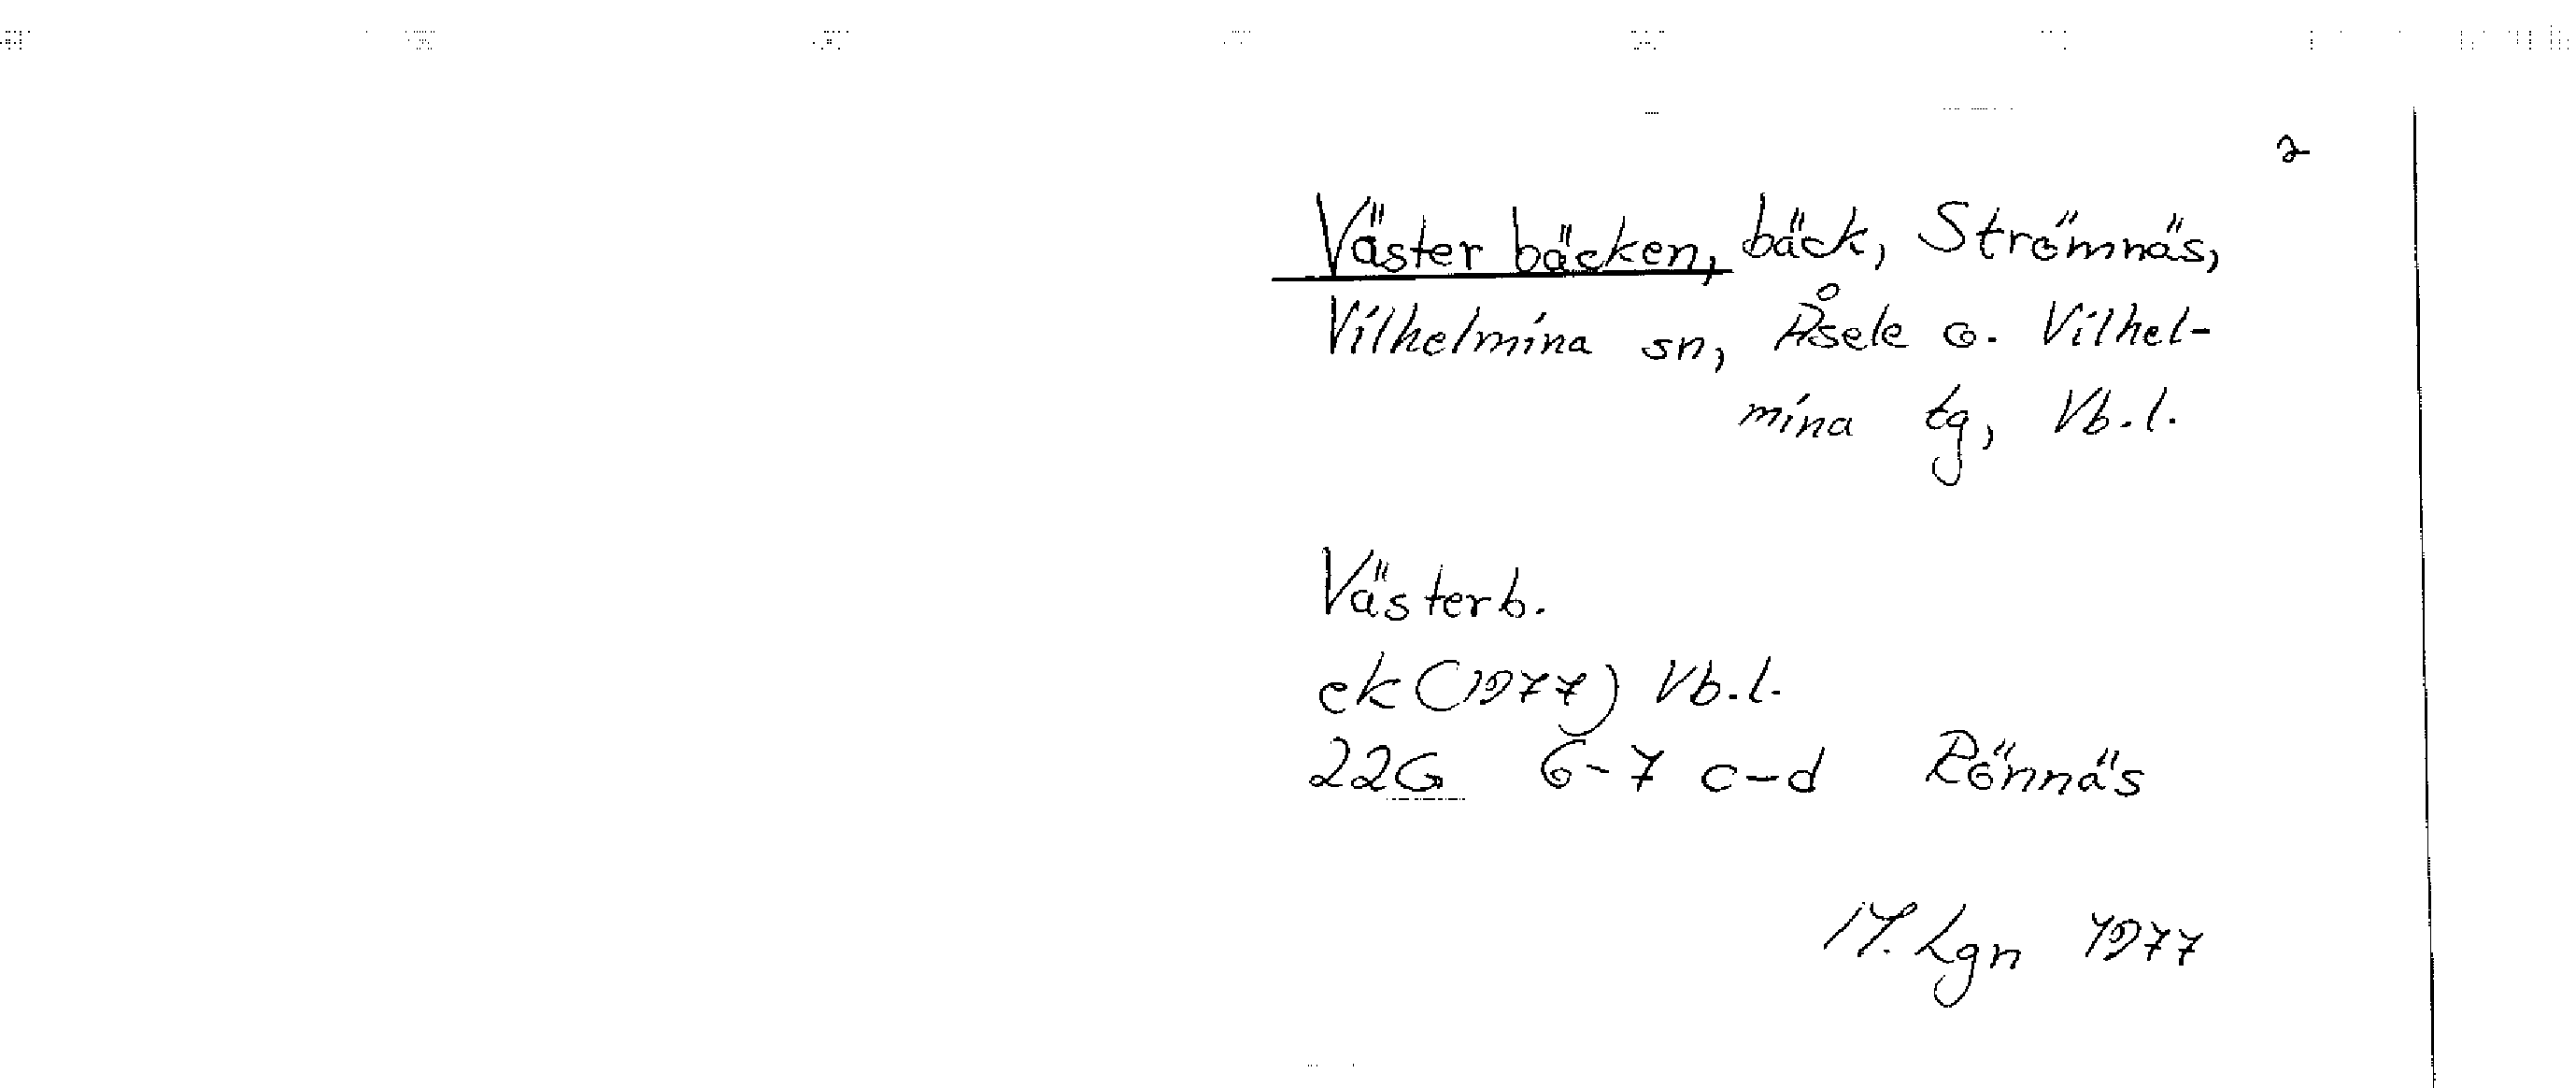 2
Västerbäcken, bäck, Strömnäs,
Vilhelmina sn, Åsele o. Vilhel-
mina tg, Vb.l.
Västerb.
ek (1977) Vb.l.
22G 6-7 c-d Rönnäs
M. Lgn 1977